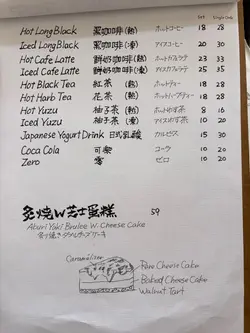 Set Single Order
Hot Long Black 黑咖啡(熱) ホットコーヒー 18 28
Iced Long Black 黑咖啡(凍) アイスコーヒー 20 30
Hot Cafe Latte 鮮奶咖啡(熱) ホットカフェラテ 23 33
Iced Cafe Latte 鮮奶咖啡(凍) アイスカフェラテ 25 35
Hot Black Tea 紅茶(熱) ホットティー 18 28
Hot Harb Tea 花茶(熱) ホットハーブティー 18 28
Hot Yuzu 柚子茶(熱) ホットゆず茶 16
Iced Yuzu 柚子茶(凍) アイスゆず茶 20 30
Japanese Yogurt Drink 日式乳酸 カルピス 15 30
Coca Cola 可樂 コーラ 10 20
Zero 零 ゼロ 10 20
炙燒W芝士蛋糕 59
Aburi Yaki Brulee W Cheese Cake
Caramelizer
Rare Cheese Cake
Baked Cheese Cake
Walnut Tart